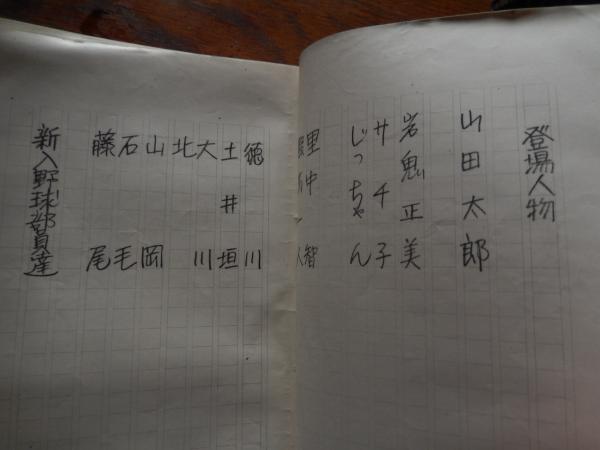 登場人物
山田太郎
岩鬼正美
サチ子
じっちゃん
里中智
徳川
土井垣
大川
北
山岡
石毛
藤尾
新入野球部員達